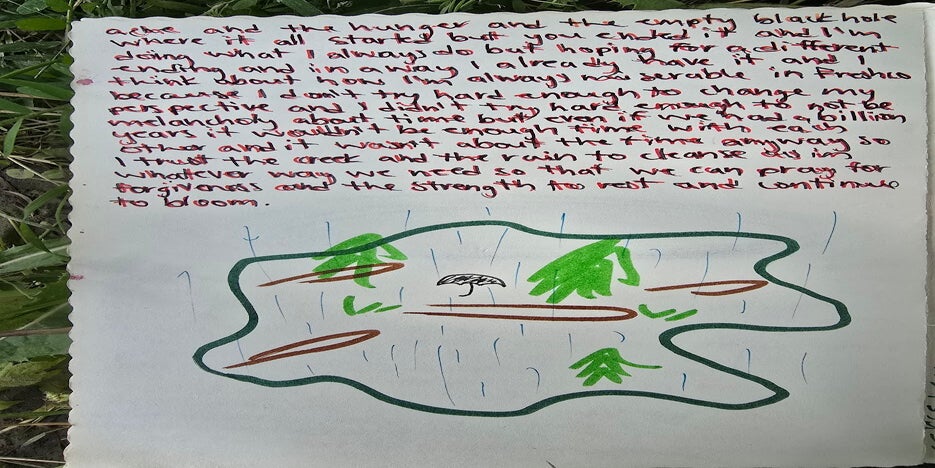 ache and the hunger and the empty black hole
where it all started but you ended it and I'm
doing what I always do but hoping for a different
ending and in a way I already have it and I
think about how I'm always miserable in Fresno
because I don't try hard enough to change my
perspective and I didn't try hard enough to not be
melancholy about time but even if we had a billion
years it wouldn't be enough time with each
other and it wasn't about the time anyway so
I trust the creek and the rain to cleanse us in
whatever way we need so that we can pray for
forgiveness and the strength to rest and continue
to bloom.